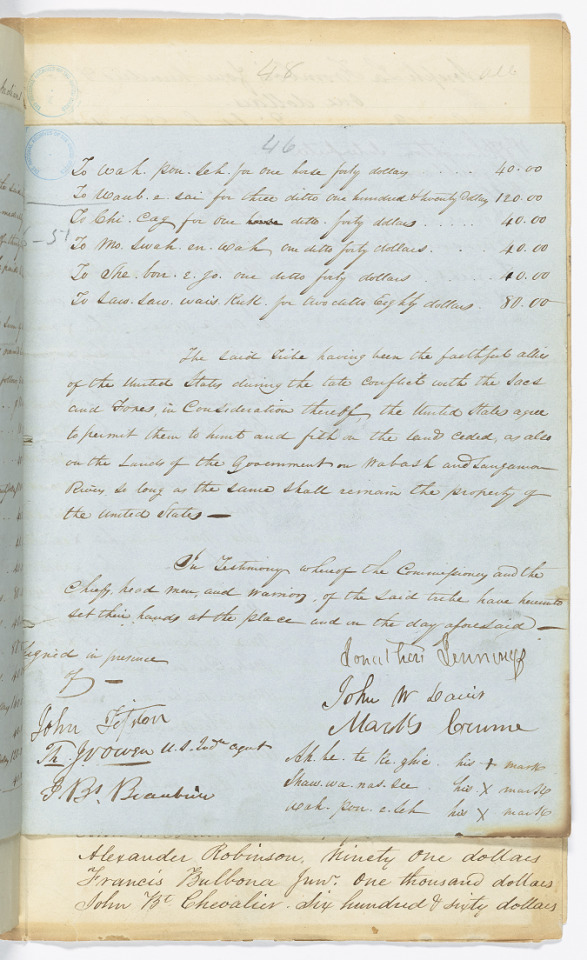 46
To Wah. pon. seh. for one horse forty dollars ..... 40.00
To Waub. e. sai for three ditto one hundred & twenty Dollars 120.00
To Chi. Cag for one horse ditto. forty dollars ..... 40.00
To Mo. Swah en. wah one ditto forty dollars ..... 40.00
To She. bon. e. go. one ditto forty dollars ..... 40.00
To Saw. Saw. wais. Kuk. for two ditto Eighty dollars . 80.00
- 51
The said tribe having been the faithful allies
of the United States during the late conflict with the Sacs
and Foxes, in Consideration thereof, the United States agree
to permit them to hunt and fish on the land ceded, as also
on the Lands of the Government on Wabash and Sangamon
River, so long as the same shall remain the property of
the United States —
In Testimony whereof the Commissioners and the
Chiefs, head men, and warriors, of the said tribe have hereunto
set their hands at the place and on the day aforesaid —
Signed in presence
of —
Jonathan Jennings
John W Davis
Marks Crume
John Tipton
Th. J V Owen U.S. Indn agent
J. Bs. Beaubien
Ah. be. te. ke. ghic. his x mark
Shaw. wa. nas. see his X mark
Wah. pon. e. seh his X mark
Alexander Robinson, Ninety one dollars
Francis Bulbona Junr. One thousand dollars
John Bt Chevalier. Six hundred & sixty dollars